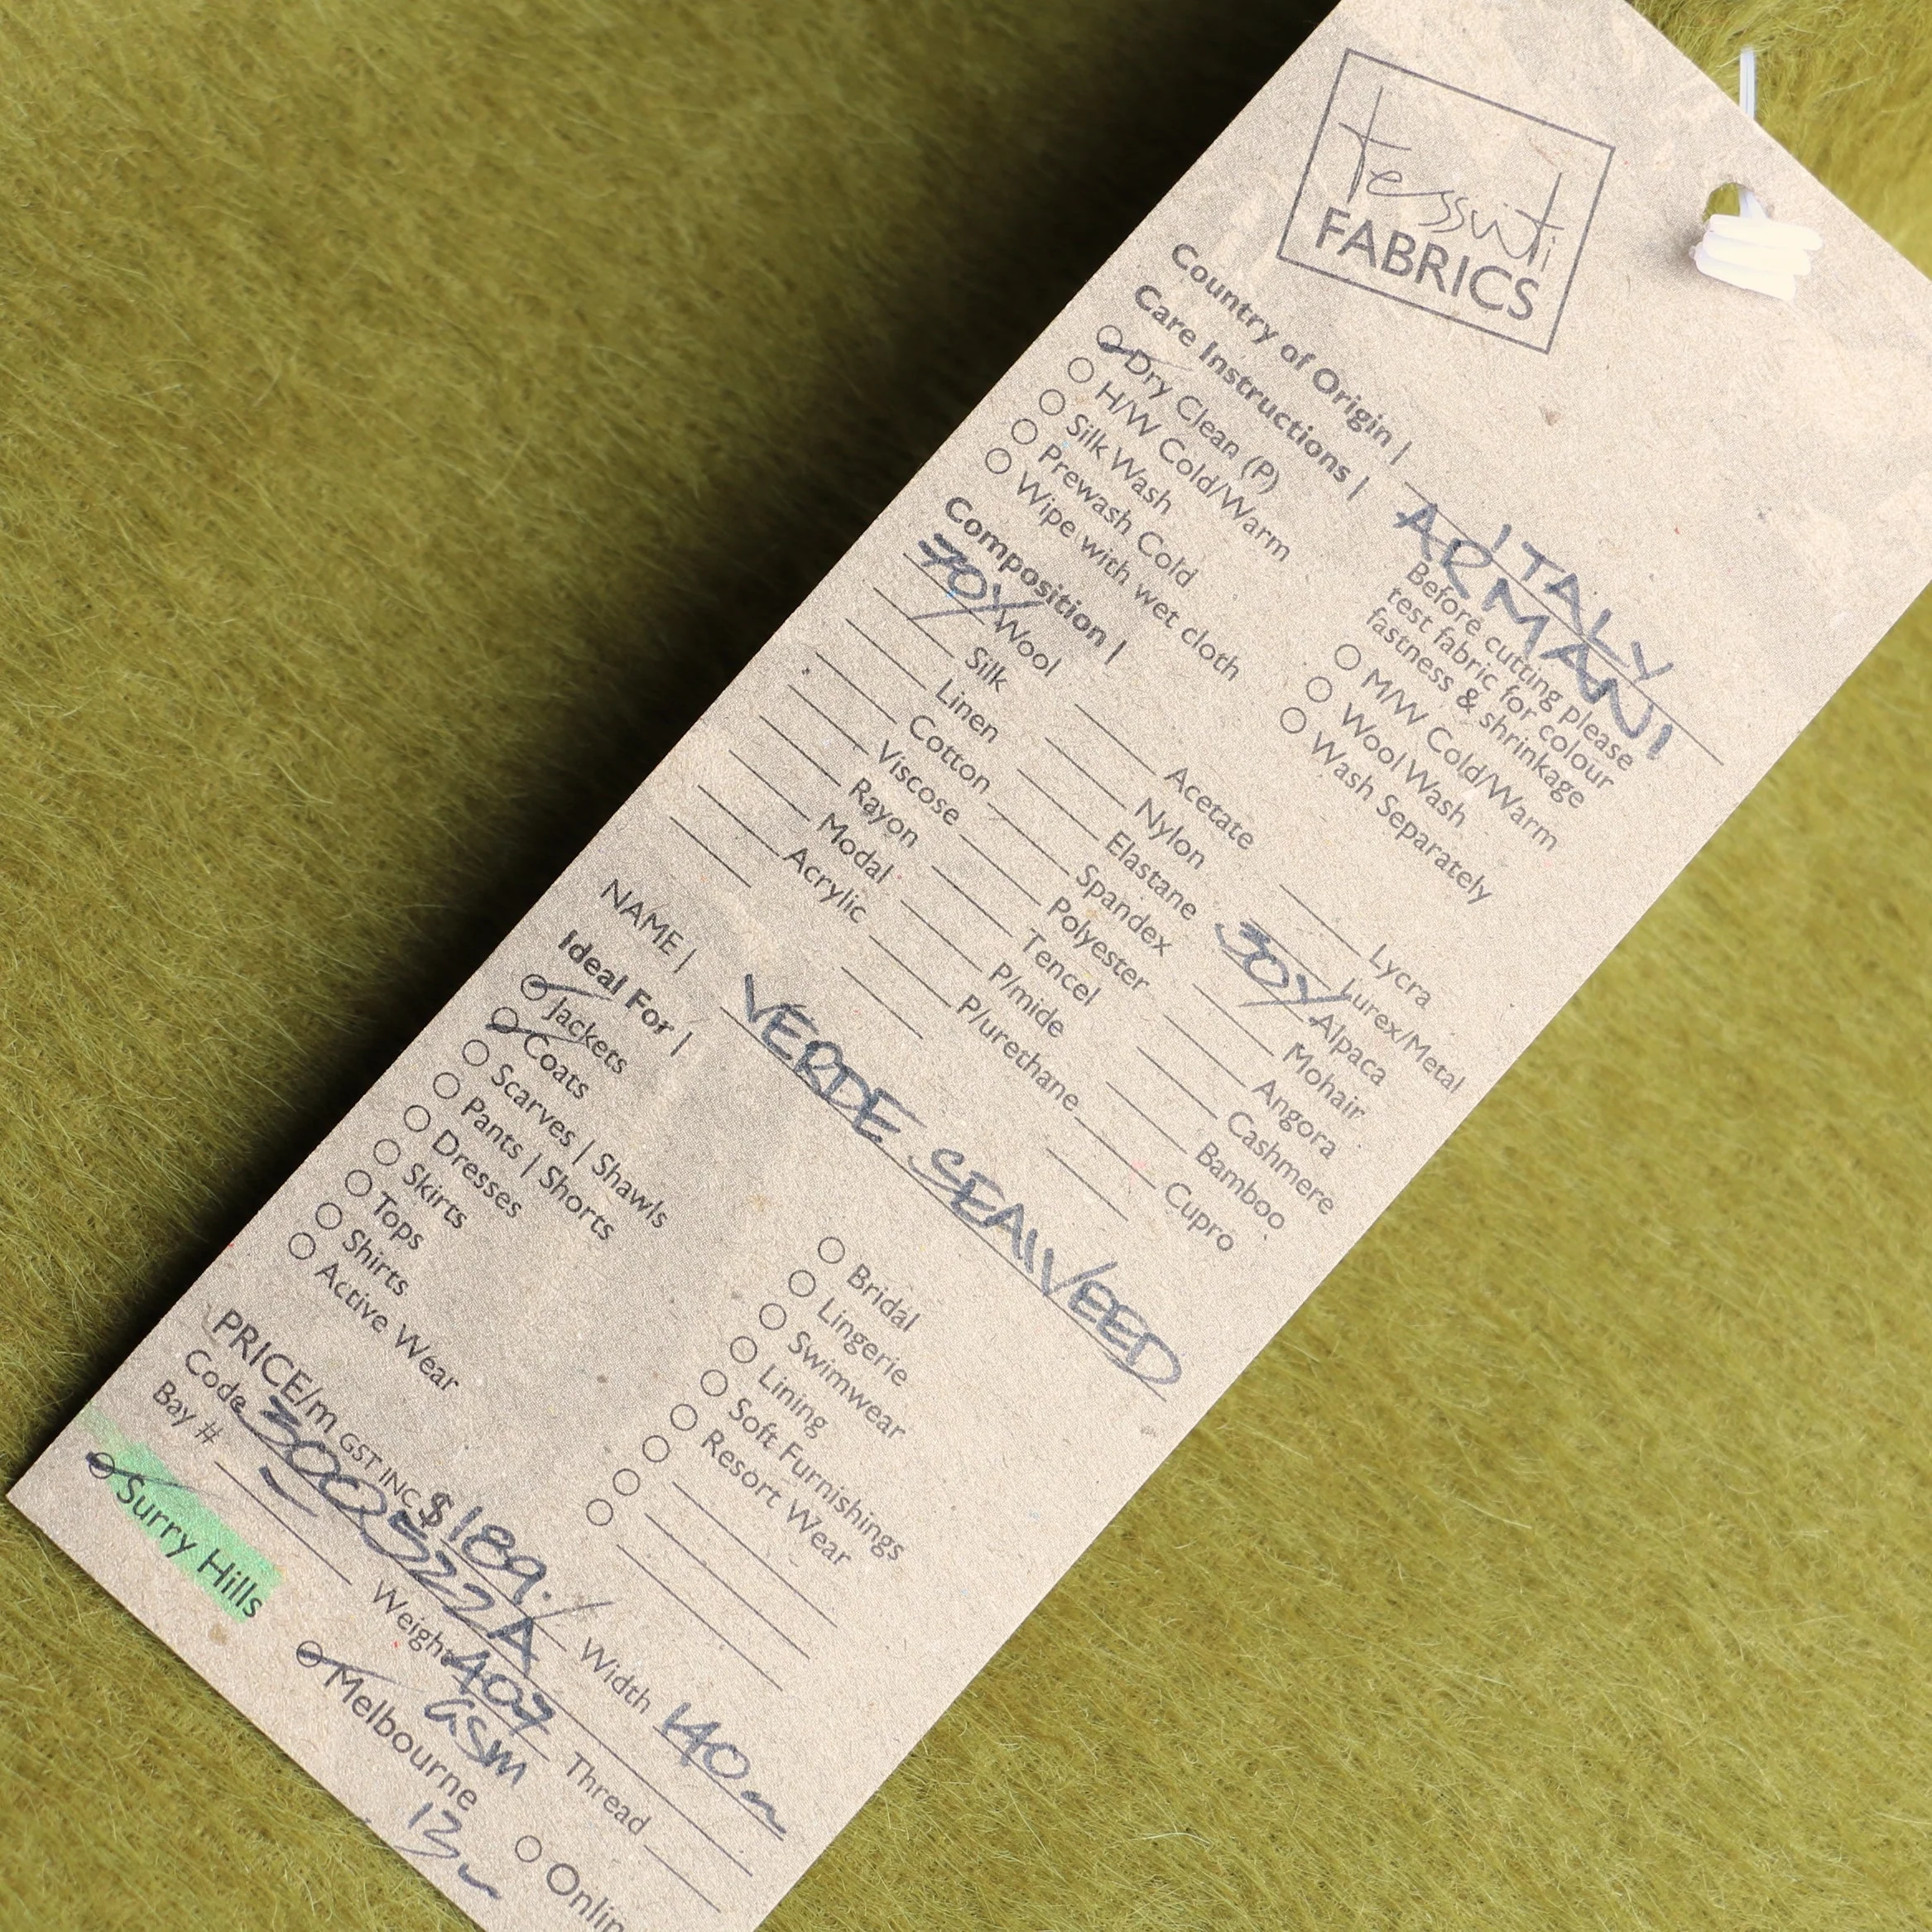 tessuti
FABRICS
Country of Origin | ITALY
ARMANI
Care Instructions |
Before cutting please
test fabric for colour
fastness & shrinkage
Dry Clean (P)
H/W Cold/Warm
M/W Cold/Warm
Silk Wash
Wool Wash
Prewash Cold
Wash Separately
Wipe with wet cloth
Composition |
70% Wool
Acetate
Lycra
Silk
Nylon
Lurex/Metal
Linen
Elastane
30% Alpaca
Cotton
Spandex
Mohair
Viscose
Polyester
Angora
Rayon
Tencel
Cashmere
Modal
P/mide
Bamboo
Acrylic
P/urethane
Cupro
NAME | VERDE SEAWEED
Ideal For |
Jackets
Bridal
Coats
Lingerie
Scarves | Shawls
Swimwear
Pants | Shorts
Lining
Dresses
Soft Furnishings
Skirts
Resort Wear
Tops
Shirts
Active Wear
PRICE/m GST INC $189.
Width 140
Code 300522A
Bay #
Weight 407
GSM
Thread
Surry Hills
Melbourne
13